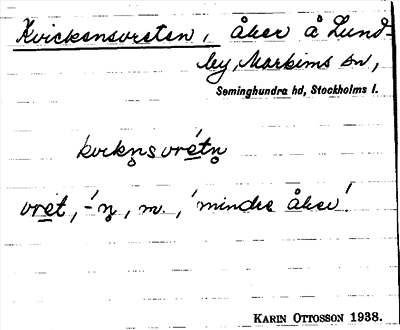 Kvickensvreten, åker å Lund-
by, Markims sn,
Seminghundra hd, Stockholms l.
kvickn̥svrétn̥
vrét, -́n̥, m., 'mindre åker'.
KARIN OTTOSSON 1938.